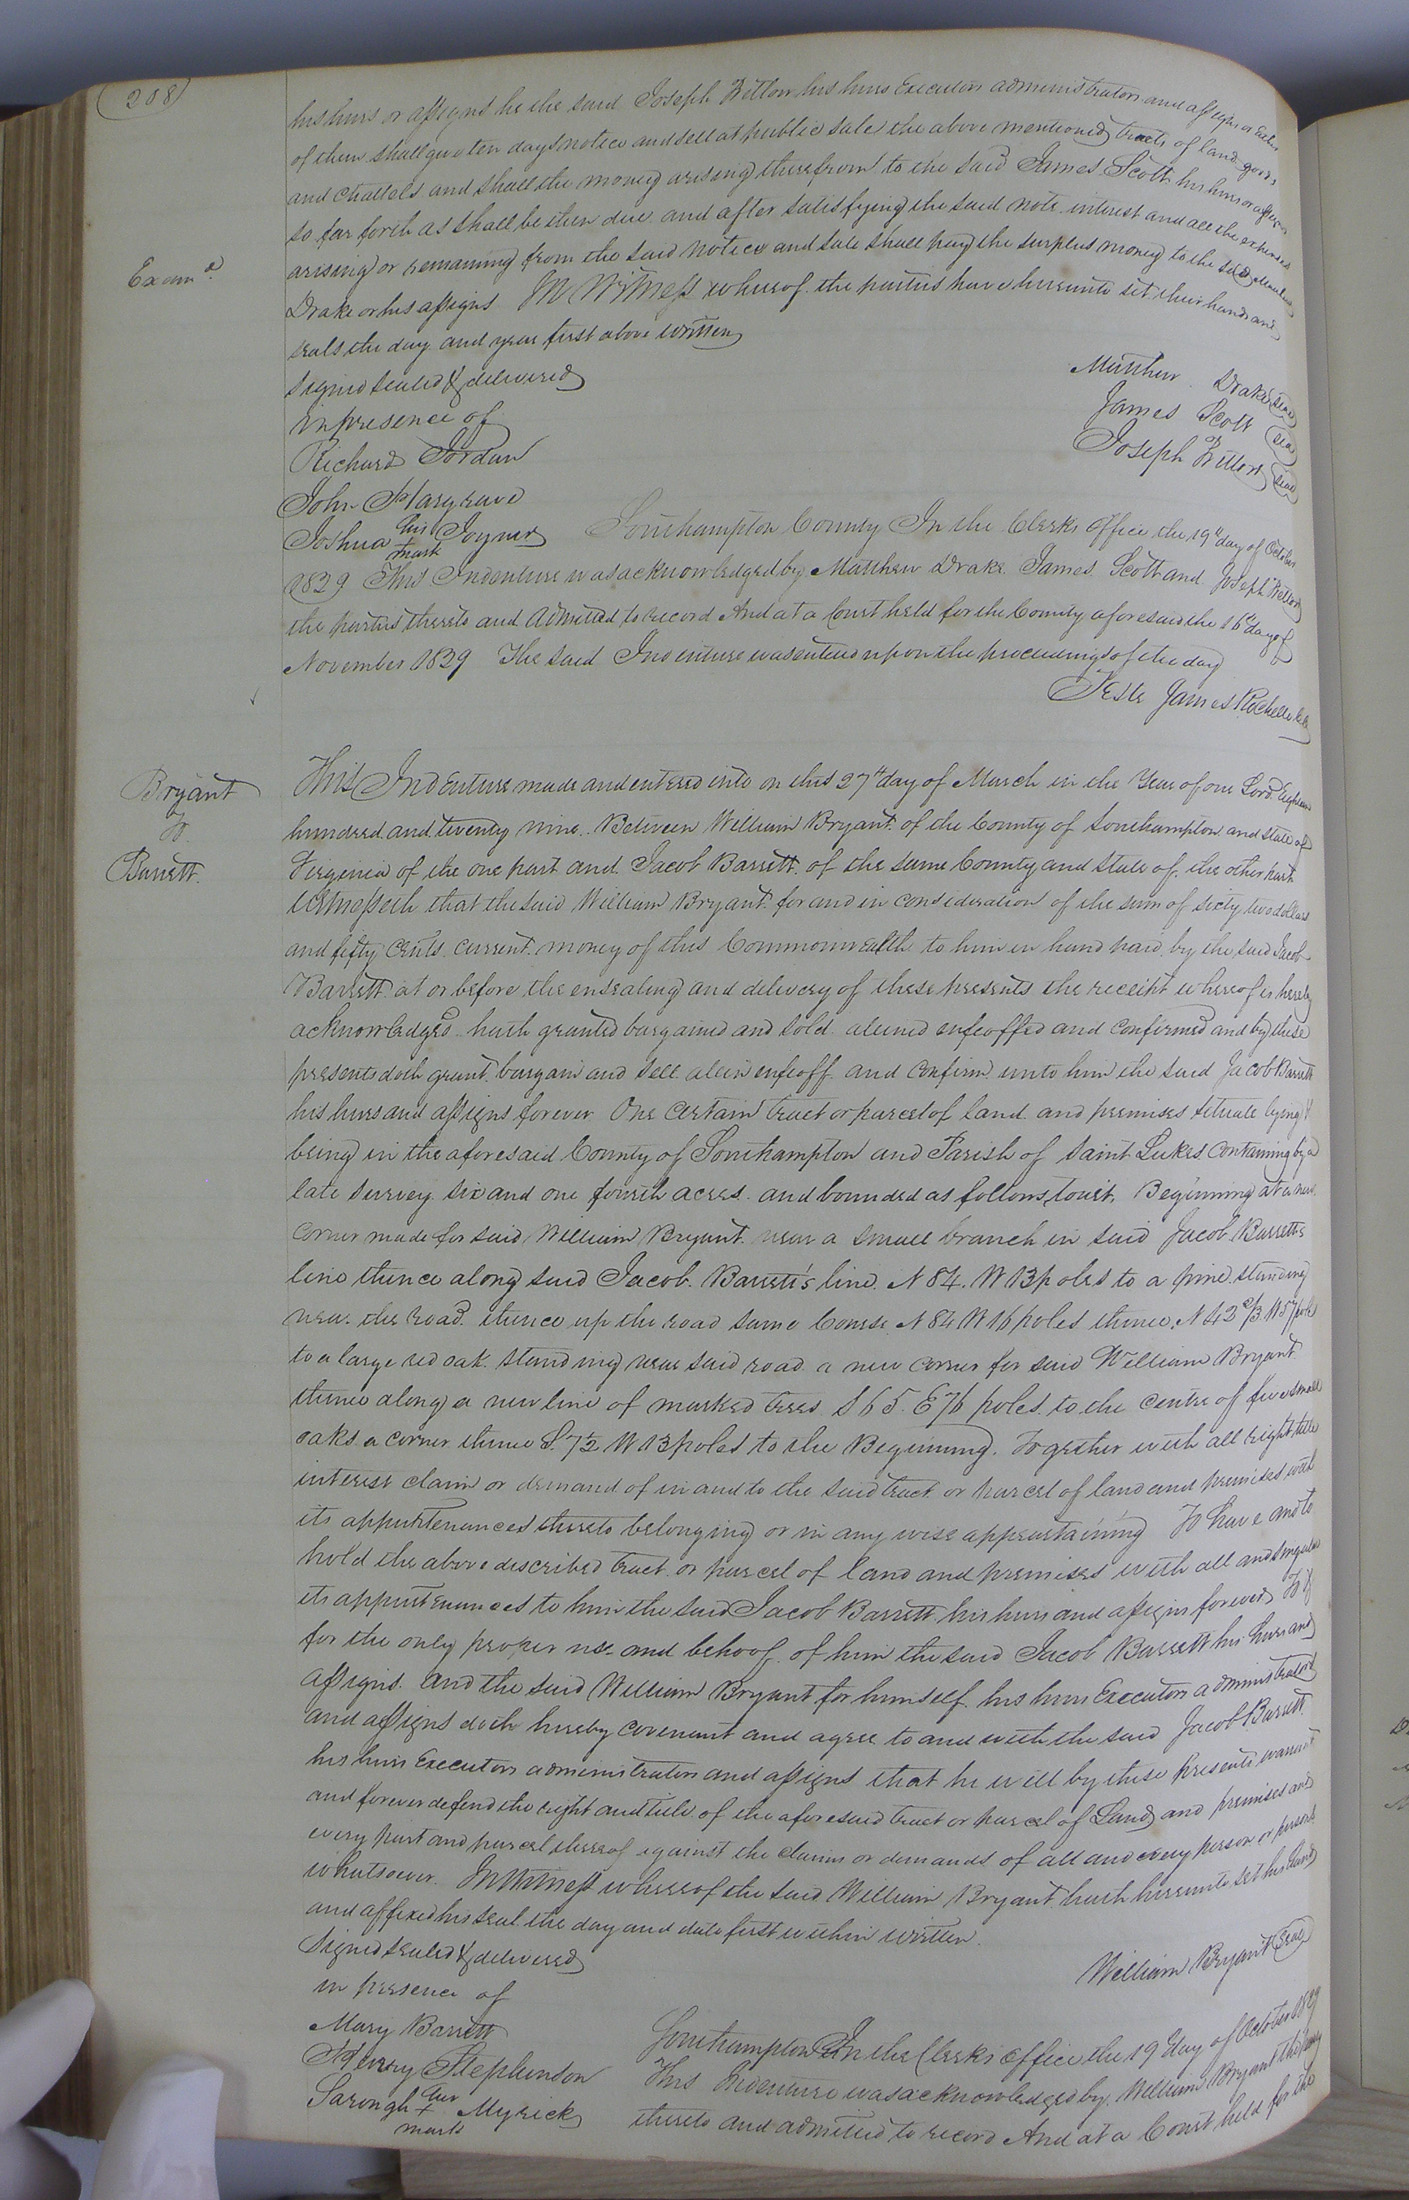 208
his heirs or assigns he the said Joseph his heirs Executors administrators and assigns or Either
of them shall give ten days notice and sell at public sale the above mentioned tracts of land goods
and chattels and shall the money arising therefrom to the said James Scott his heirs or assigns
so far forth as shall be then due and after satisfying the said note interest and all the expenses
Exam.d
arising or remaining from the said notice and sale shall pay the surplus money to the sd Matthew
Drake or his assigns In Witness whereof the parties have hereunto set their hands and
seals the day and year first above written
Signed sealed & delivered
in presence of
Richard Jordan
John Hargrave
Joshua his mark Joyner
Matthew Drake seal
James Scott seal
Joseph seal
Southampton County In the Clerks Office the 19th day of October
1829 This Indenture was acknowledged by Matthew Drake James Scott and Joseph
the parties thereto and admitted to record And at a Court held for the County aforesaid the 16th day of
November 1829 The said Indenture was entered upon the proceedings of the day
Teste James Rochelle
Bryant
To
Barrett.
This Indenture made and entered into on this 27th day of March in the Year of our Lord Eighteen
hundred and twenty nine. Between William Bryant of the County of Southampton and State of
Virginia of the one part and Jacob Barrett of the same County and State of the other part
Witnesseth that the said William Bryant for and in consideration of the sum of sixty two dollars
and fifty Cents current money of this Commonwealth to him in hand paid by the said Jacob
Barrett at or before the ensealing and delivery of these presents the receipt whereof is hereby
acknowledged hath granted bargained and sold aliened enfeoffed and confirmed and by these
presents doth grant bargain and sell alein enfeoff and confirm unto him the said Jacob Barrett
his heirs and assigns forever One Certain tract or parcel of land and premises situate lying &
being in the aforesaid County of Southampton and Parish of Saint Lukes Containing by a
late survey six and one fourth acres and bounded as follows, towit, Beginning at a new
corner made for said William Bryant near a small branch in said Jacob Barrett's
line thence along said Jacob Barrett's line N 84. W 13 poles to a pine standing
near the Road thence up the road same Course N 84 W 16 poles thence N 42 2/3 W 57 poles
to a large red oak standing near said road a new corner for said William Bryant
thence along a new line of marked trees S 65. E 76 poles to the centre of five small
oaks a corner thence S. 7½ W 13 poles to the Beginning. Together with all right title
interest claim or demand of in and to the said tract or parcel of land and premises with
its appurtenances thereto belonging or in any wise appertaining To have and to
hold the above described tract or parcel of land and premises with all and singular
its appurtenances to him the said Jacob Barrett his heirs and assigns forever To &
for the only proper use and behoof of him the said Jacob Barrett his heirs and
assigns. And the said William Bryant for himself his heirs Executors administrators
and assigns doth hereby covenant and agree to and with the said Jacob Barrett
his heirs Executors administrators and assigns that he will by these presents warrant
and forever defend the right and title of the aforesaid tract or parcel of Land and premises and
every part and parcel thereof against the claims or demands of all and every person or persons
whatsoever. In Witness whereof the said William Bryant hath hereunto set his hand
and affixed his seal the day and date first within written.
Signed sealed & delivered
in presence of
Mary Barrett
Stephenson
her mark Myrick
William Bryant Seal
Southampton In the Clerks Office the 19 day of October 1829
This Indenture was acknowledged by William Bryant the party
thereto and admitted to record And at a Court held for the